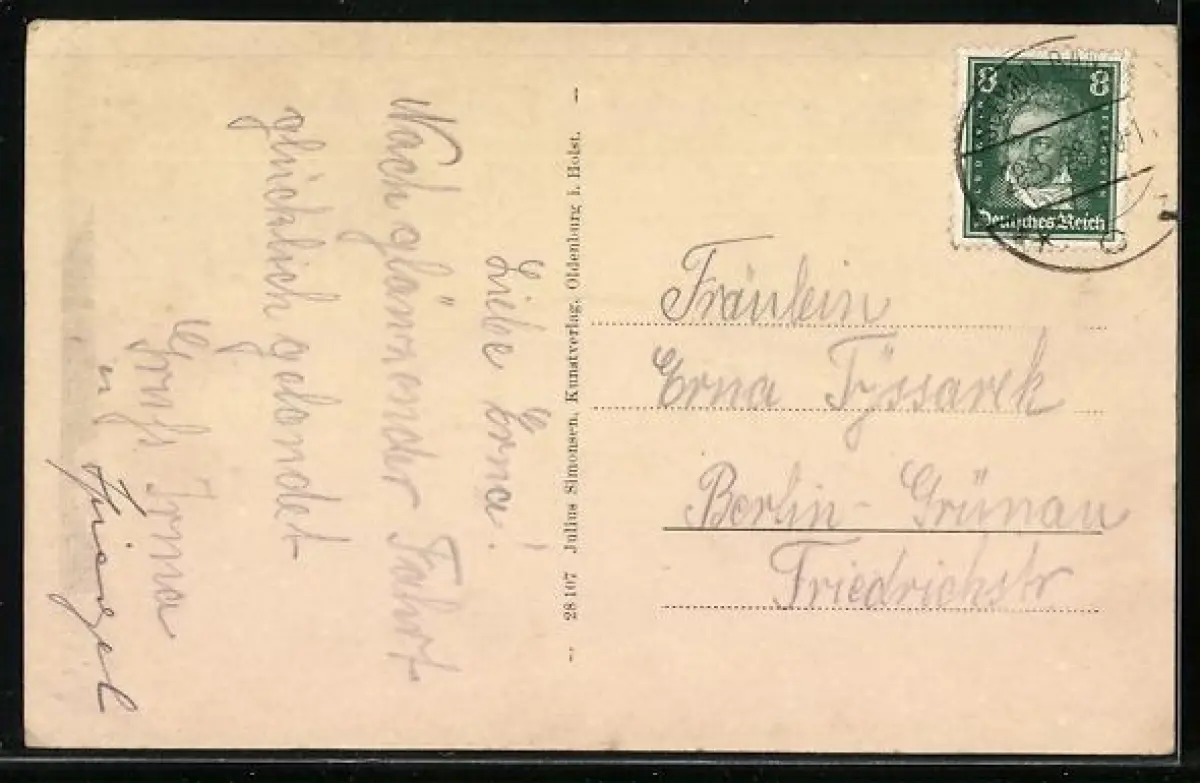 Liebe Erna!
Nach glänzender Fahrt
glücklich gelandet
Gruß Irma
u
28 107 Julius Simonsen, Kunstverlag, Oldenburg i. Holst.
8 8
Deutsches Reich
Fräulein
Erna Tyssarek
Berlin-Grünau
Friedrichstr